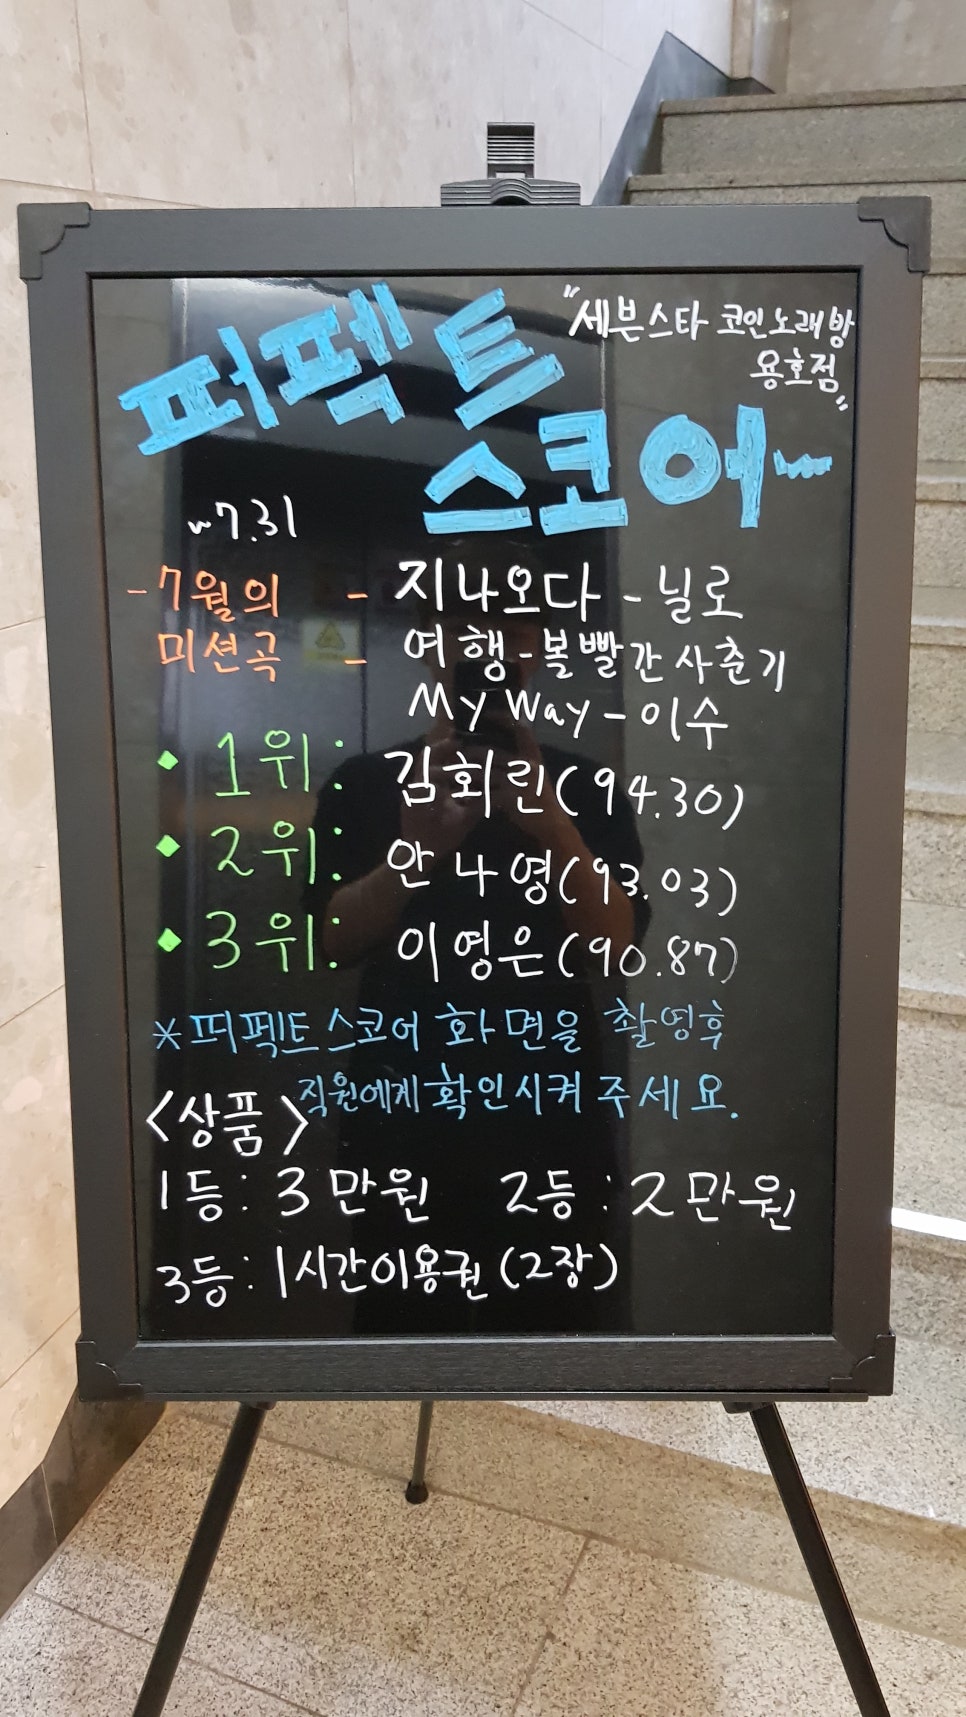 "세븐스타 코인노래방
용호점"
퍼펙트
스코어~
~7.31
-7월의 - 지나오다 - 닐로
미션곡 - 여행 - 볼빨간사춘기
My Way - 이수
• 1위: 김회린(94.30)
• 2위: 안나영(93.03)
• 3위: 이영은(90.87)
*퍼펙트스코어 화면을 촬영후
직원에게 확인시켜 주세요.
<상품>
1등: 3만원 2등: 2만원
3등: 1시간이용권(2장)